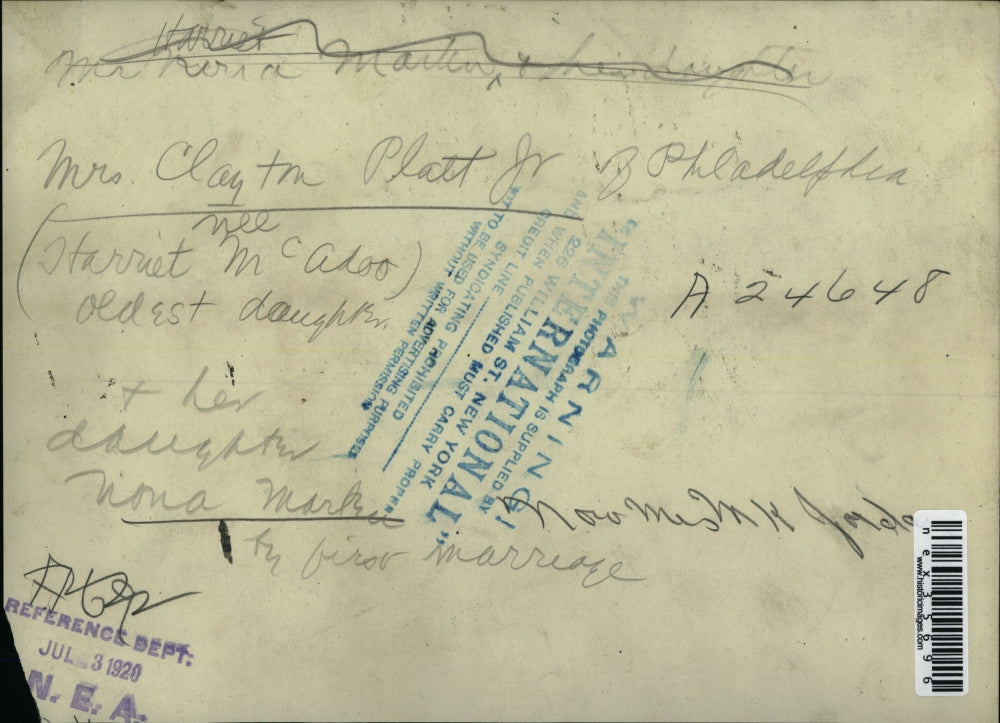 Harriet
Mrs Nona Martin, & her daughter
Mrs. Clayton Platt Jr of Philadelphia
nee
(Harriet McAdoo)
oldest daughter
A 24648
+ her
daughter
Nona
by first marriage
Now Mrs
WARNING!
THIS PHOTOGRAPH IS SUPPLIED BY
"INTERNATIONAL"
226 WILLIAM ST. NEW YORK
AND WHEN PUBLISHED MUST CARRY PROPER
CREDIT LINE
SYNDICATING PROHIBITED
NOT TO BE USED FOR ADVERTISING PURPOSES
WITHOUT WRITTEN PERMISSION
REFERENCE DEPT.
JUL 3 1920
N. E. A.
nex35696
www.historicimages.com